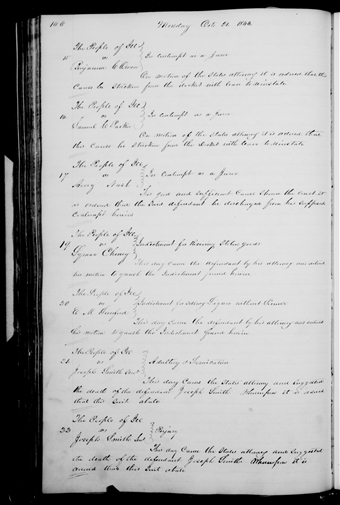 166 Monday Oct. 21. 1844
The People of Ill
15 vs In contempt as a Juror
Benjamin
On motion of the States attorney it is ordered that this
Cause be Stricken from the docket with leave to Reinstate
The People of Ill
16 vs In contempt as a Juror
Samuel C Parker
On motion of the States attorney it is ordered that
this Cause be Stricken from the docket with leave to Reinstate
The People of Ill
17 vs In contempt as a Juror
For good and Sufficient Cause Shown the Court it
is ordered that the Said defendant be discharged from his Supposed
Contempt herein
The People of Ill
19 vs Indictment for
Cheney
This day Came the defendant by his attorney and entered
his motion to quash the Indictment found herein
The People of Ill
20 vs Indictment for Selling Liquor without License
W. M.
This day Came the defendant by his attorney and entered
his motion to quash the Indictment found herein
The People of Ill
21 vs Adultery & Fornication
Joseph Smith Senr
This day Came the States attorney and Suggested
the death of the defendant Joseph Smith Whereupon it is ordered
that this Suit abate
The People of Ill
22 vs Perjury
Joseph Smith Senr
This day Came the States attorney and Suggested
the death of the defendant Joseph Smith Whereupon it is
ordered that this Suit abate